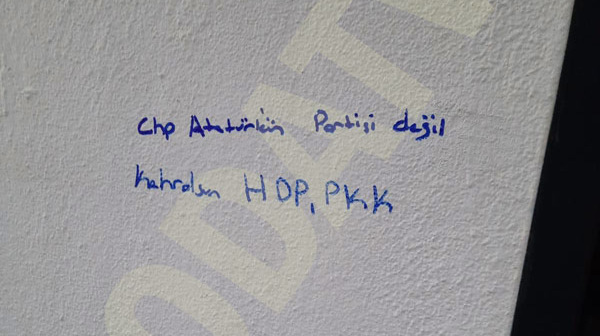 Chp Atatürk'ün Partisi değil
Kahrolsun HDP, PKK